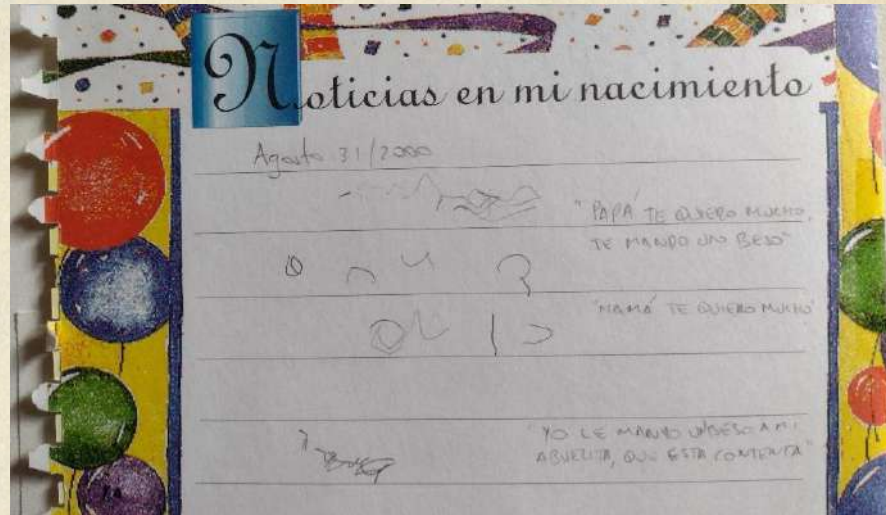 Noticias en mi nacimiento
Agosto 31/2000
"PAPÁ TE QUIERO MUCHO,
TE MANDO UN BESO"
"MAMÁ TE QUIERO MUCHO"
"YO LE MANDO UN BESO A MI
ABUELITA, QUE ESTA CONTENTA"